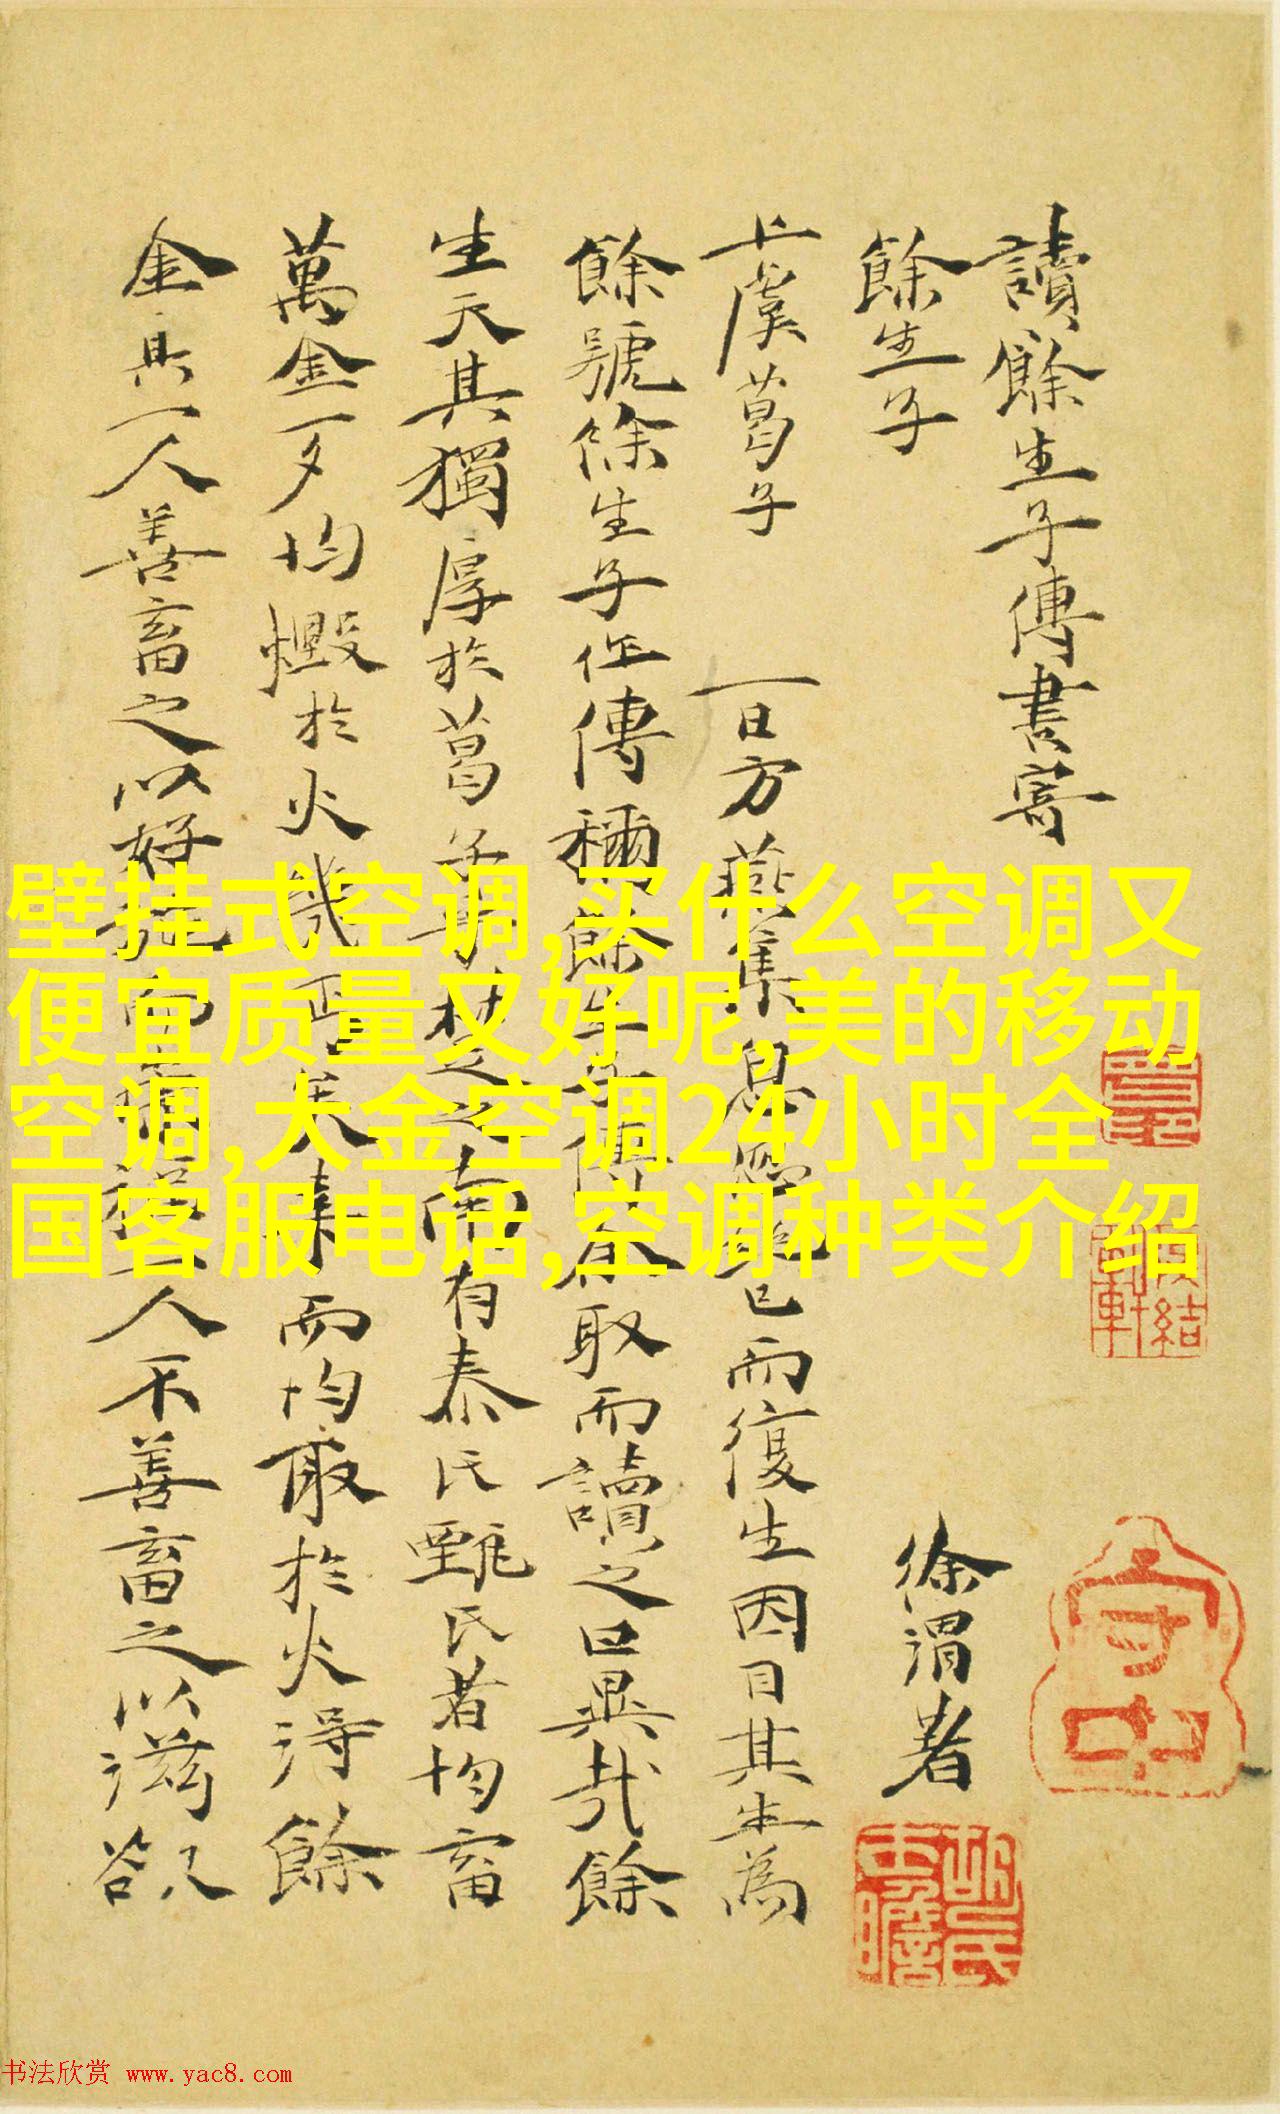 讀餘生子傳書寄
餘生子
徐渭著
上虞葛子 一日方燕集息忽絕已而復生因目其生為
餘號餘生子作傳稱餘生子傳余取而讀之曰異哉餘
生天其獨厚於葛子耶楚之南有秦氏甄氏者均畜
萬金一夕均燬於火幾而美來而均取於火得餘
金其一人善畜之以好施而福一人不善畜之以滋欲
壁挂式空调,买什么空调又
便宜质量又好呢,美的移动
空调,大金空调24小时全
国客服电话,空调种类介绍
守中
书法欣赏 www.yac8.com